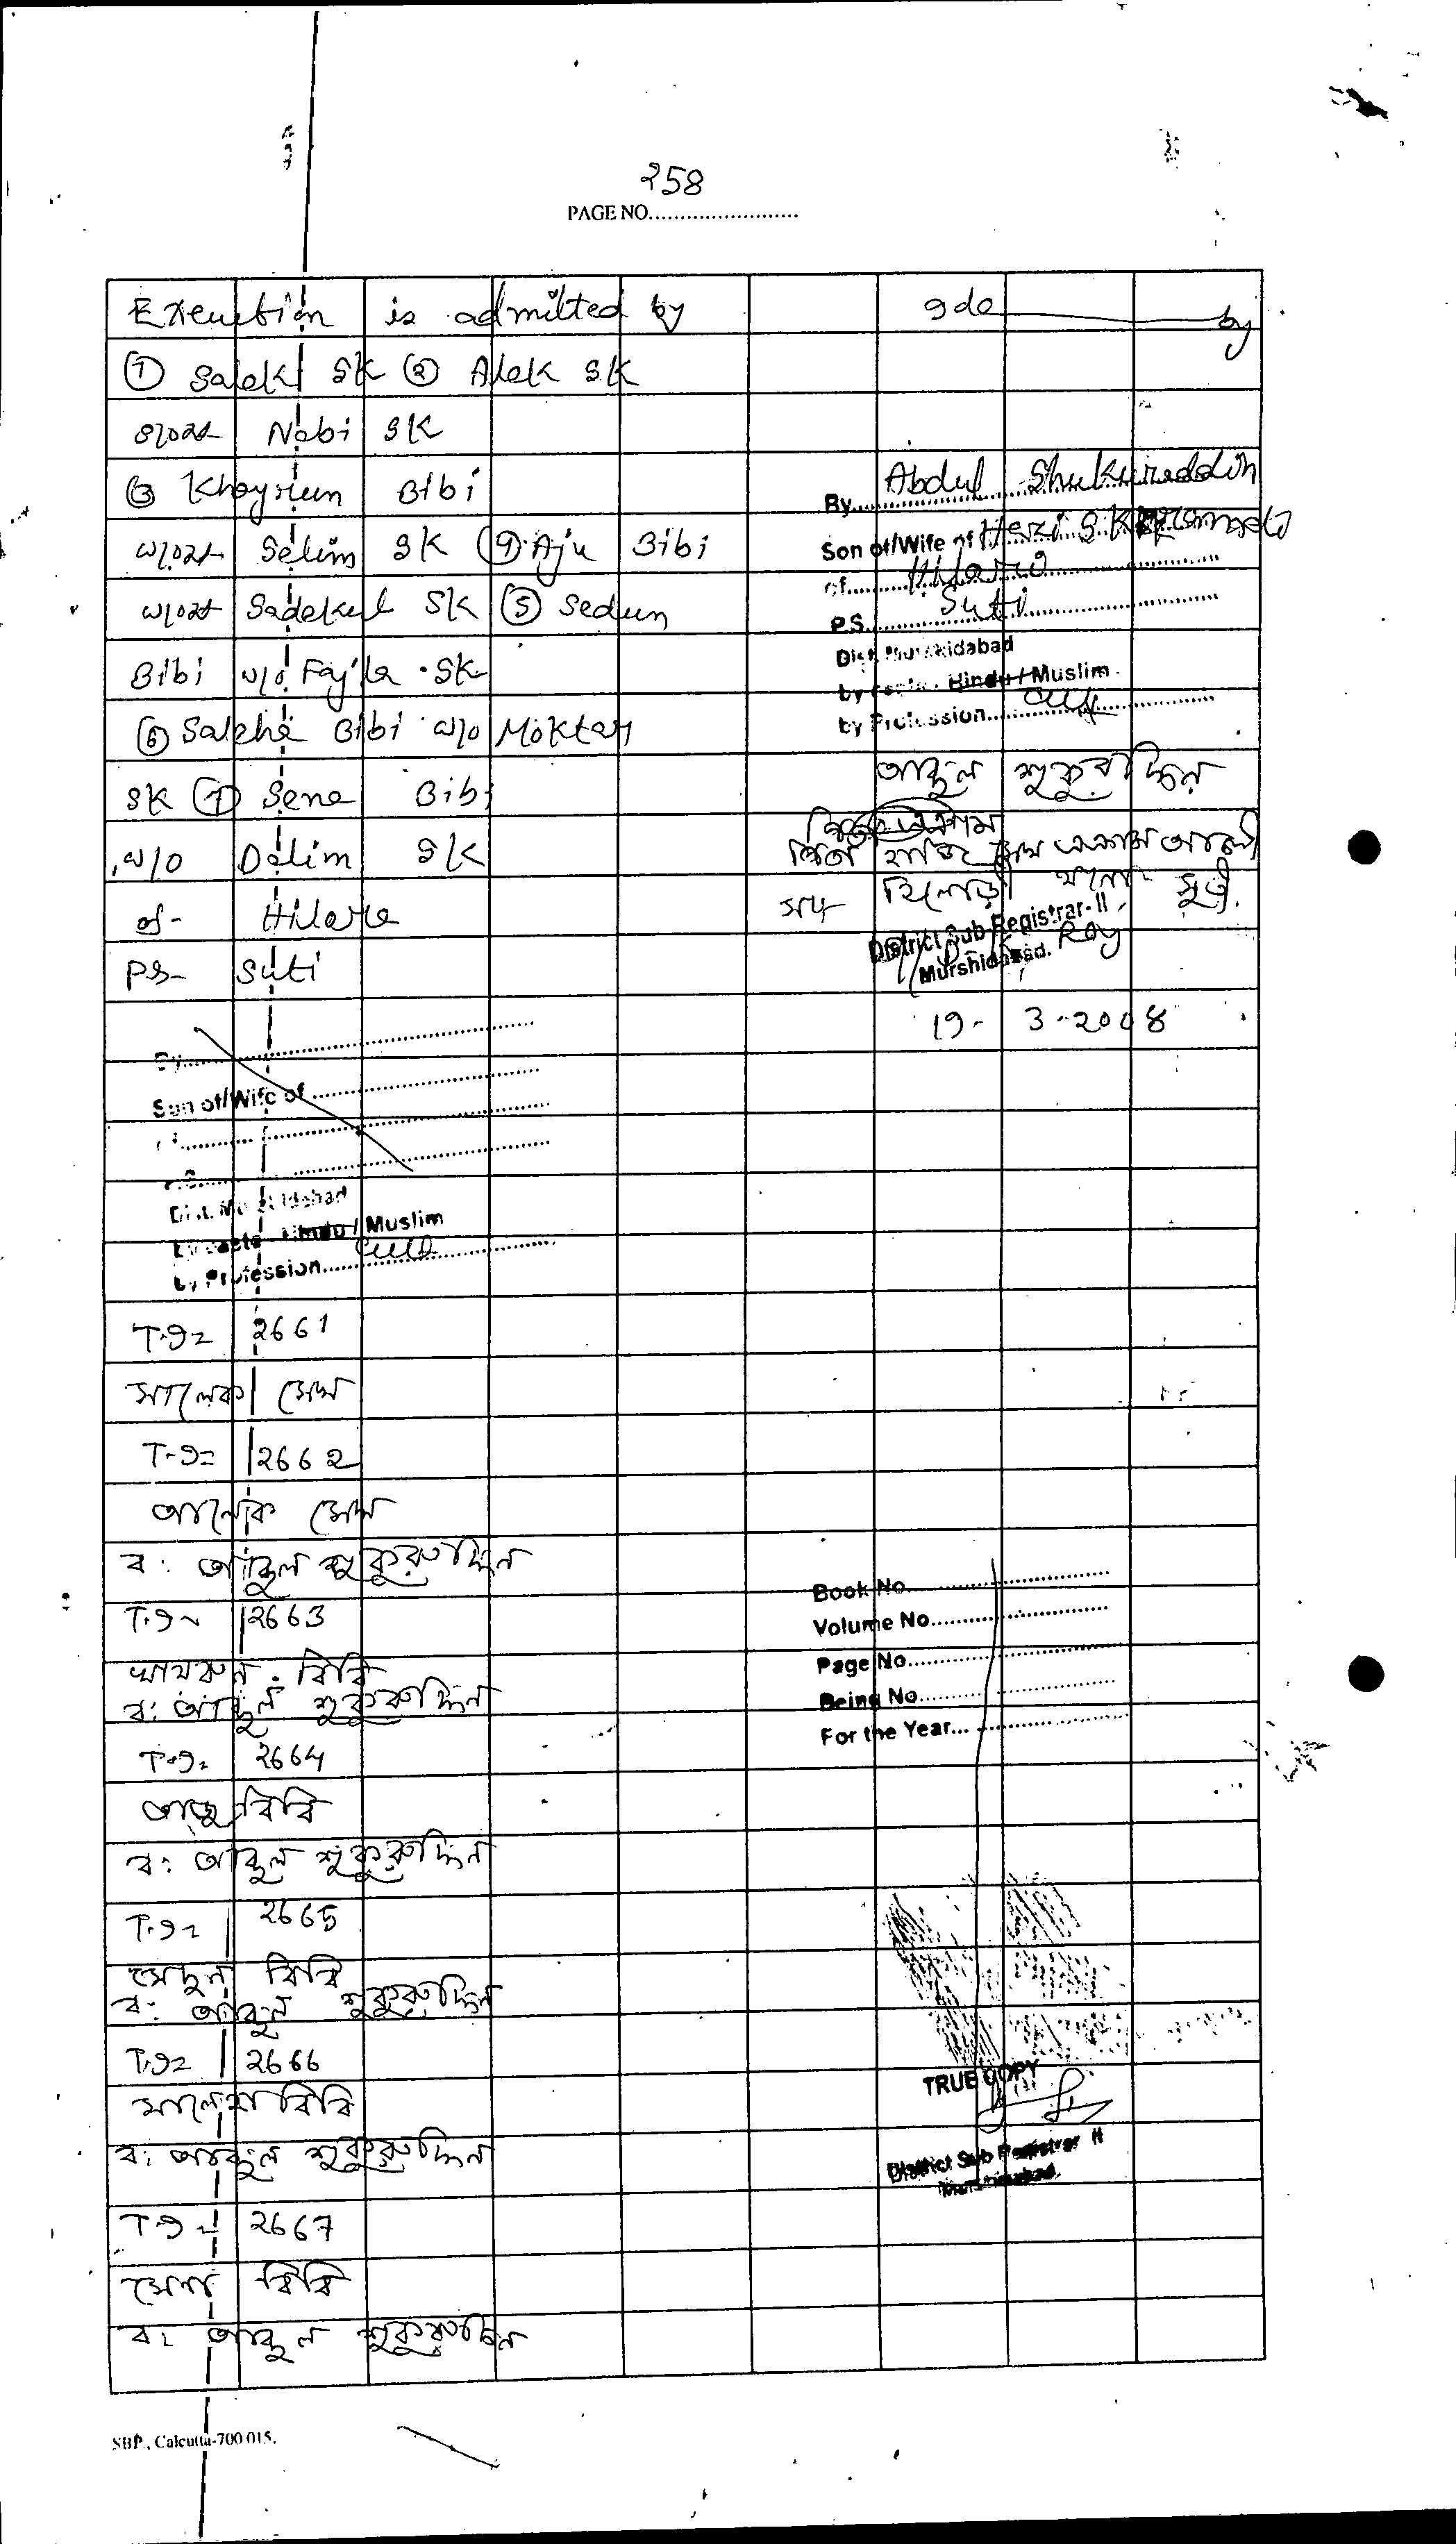 258
PAGE NO.........................
Execution is admitted by
① Salek SK ② Alek SK
Nabi SK
③ Khayrun Bibi
Selim SK ④ Aju Bibi
Sadekul SK ⑤ Sedun
Bibi w/o Fajla SK
⑥ Saleha Bibi w/o Moktar
SK ⑦ Sena Bibi
w/o Dalim SK
of- Hilora
PS- Suti
By.........................
Son of/Wife of .........................
.........................
.........................
Dist. Murshidabad
by caste - Hindu / Muslim
by Profession.........................
2661
সালেক সেখ
2662
আলেক সেখ
ব: আব্দুল শুকুরুদ্দিন
2663
খায়রুন বিবি
ব: আব্দুল শুকুরুদ্দিন
2664
আজু বিবি
ব: আব্দুল শুকুরুদ্দিন
2665
সেদুন বিবি
ব: আব্দুল শুকুরুদ্দিন
2666
সালেহা বিবি
ব: আব্দুল শুকুরুদ্দিন
2667
সেনা বিবি
ব: আব্দুল শুকুরুদ্দিন
by
By Abdul Shukuruddin
Son of/Wife of Hazi SK
of Hilora
P.S. Suti
Dist. Murshidabad
by caste - Hindu / Muslim
by Profession.........................
আব্দুল শুকুরুদ্দিন
পিতা হাজি সেখ
হিলোড়া থানা সুতী
District Sub Registrar- II
Roy
Murshidabad.
19- 3-2008
Book No.........................
Volume No.........................
Page No.........................
Being No.........................
For the Year.........................
TRUE COPY
District Sub Registrar II
Murshidabad.
SBP., Calcutta-700 015.